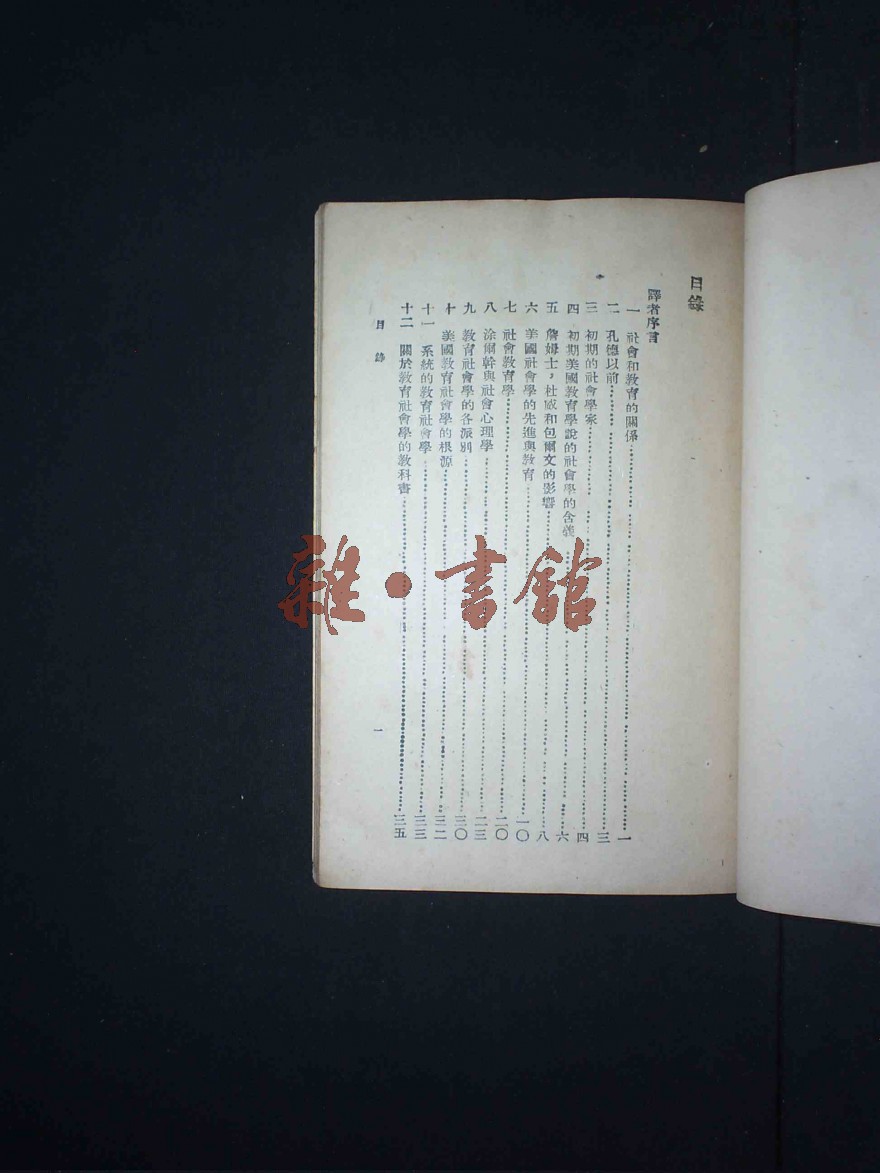 目錄
譯者序言
一 社會和教育的關係……一
二 孔德以前……三
三 初期的社會學家……四
四 初期美國教育學說的社會學的含義……六
五 詹姆士，杜威和包爾文的影響……八
六 美國社會學的先進與教育……一〇
七 社會教育學……二〇
八 涂爾幹與社會心理學……二三
九 教育社會學的各派別……三〇
十 美國教育社會學的根源……三二
十一 系統的教育社會學……三三
十二 關於教育社會學的教科書……三五
目錄
一
雜·書館